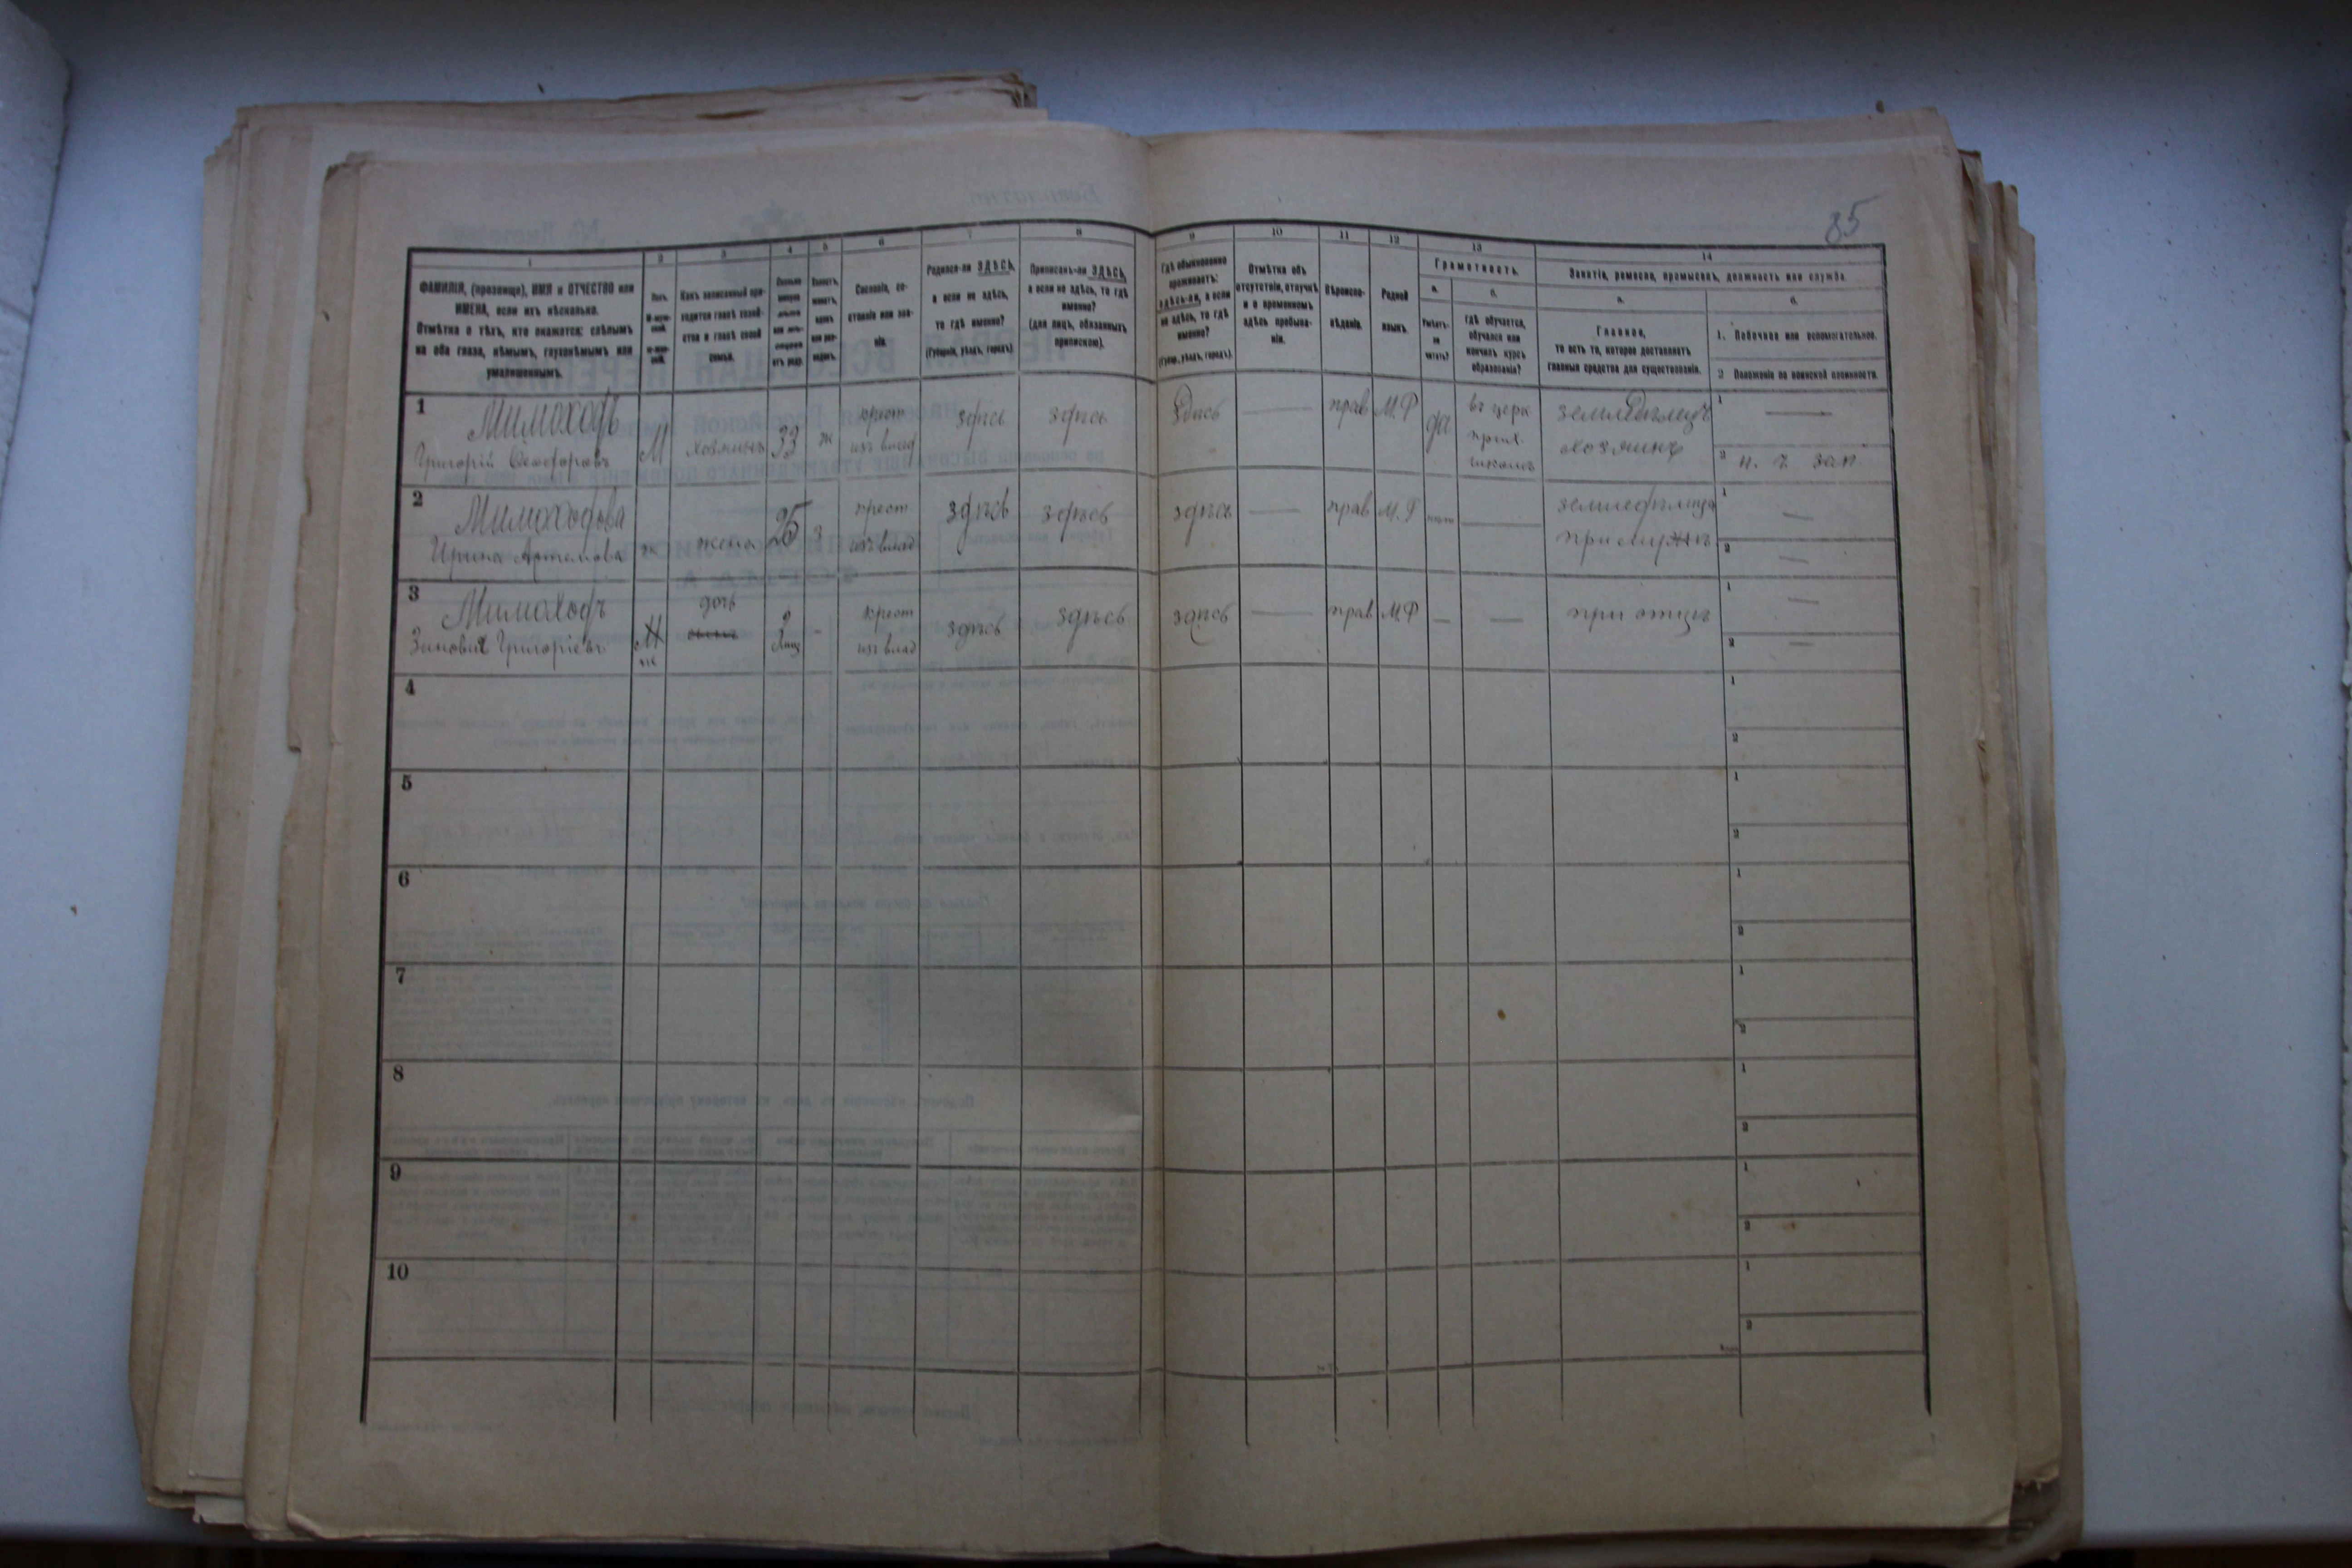 85
1 2 3 4 5 6 7 8 9 10 11 12 13 14
ФАМИЛІЯ, (прозвище), ИМЯ и ОТЧЕСТВО или
ИМЕНА, если ихъ нѣсколько.
Отмѣтка о тѣхъ, кто окажется: слѣпымъ
на оба глаза, нѣмымъ, глухонѣмымъ или
умалишеннымъ.
Полъ.
М-муж-
ской.
Ж-жен-
скій.
Какъ записанный при-
ходится главѣ хозяй-
ства и главѣ своей
семьи.
Сколько
минуло
лѣтъ
или мѣ-
сяцевъ
отъ роду.
Холостъ,
женатъ,
вдовъ
или раз-
веденъ.
Сословіе, со-
стояніе или зва-
ніе.
Родился-ли ЗДѢСЬ,
а если не здѣсь,
то гдѣ именно?
(Губернія, уѣздъ, городъ).
Приписанъ-ли ЗДѢСЬ,
а если не здѣсь, то гдѣ
именно?
(для лицъ, обязанныхъ
припиской).
Гдѣ обыкновенно
проживаетъ:
здѣсь-ли, а если
не здѣсь, то гдѣ
именно?
(Губерн., уѣздъ, городъ).
Отмѣтка объ
отсутствіи, отлучкѣ
и о временномъ
здѣсь пребыва-
ніи.
Вѣроиспо-
вѣданіе.
Родной
языкъ.
Грамотность.
а.
Умѣетъ-
ли
читать?
б.
Гдѣ обучается,
обучался или
кончилъ курсъ
образованія?
Занятіе, ремесло, промыселъ, должность или служба.
а.
Главное,
то есть то, которое доставляетъ
главныя средства для существованія.
б.
1. Побочное или вспомогательное.
2 Положеніе по воинской повинности.
1 Мимоходъ
Григорій Феодоровъ М хозяинъ 33 ж крест
изъ влад здѣсь здѣсь здѣсь — прав М.Р да въ церк
прих.
школѣ земледѣлецъ
хозяинъ 1 —
2 н. ч зап.
2 Мимоходова
Ирина Артемова ж жена 25 з крест
изъ влад здѣсь здѣсь здѣсь — прав М.Р нѣтъ — земледѣлица
при мужѣ 1 —
2 —
3 Мимоходъ
Григоріевъ М
ж дочь крест
изъ влад здѣсь здѣсь здѣсь — прав М.Р — — при отцѣ 1 —
2 —
4 1
2
5 1
2
6 1
2
7 1
2
8 1
2
9 1
2
10 1
2